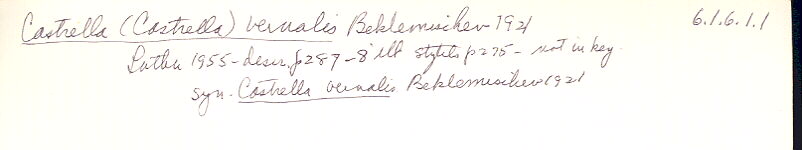 Castrella (Castrella) vernalis Beklemischev 1921 6.1.6.1.1
Luther 1955 - descr. p287-8 ill stylets p275 - not in key.
syn. Castrella vernalis Beklemischev 1921